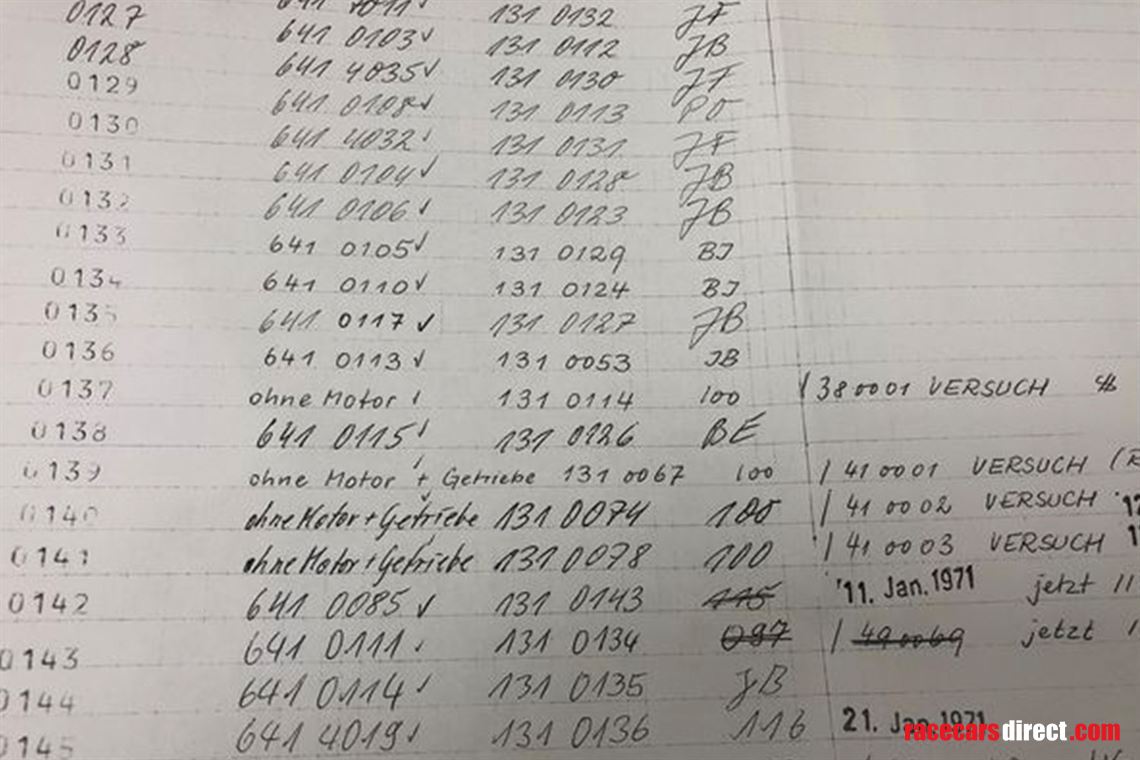 0127 131 0132 JF
0128 641 0103✓ 131 0112 JB
0129 641 4035✓ 131 0130 JF
0130 641 0108✓ 131 0113 PO
0131 641 4032✓ 131 0131 JF
0132 641 0104✓ 131 0128 JB
0133 641 0106✓ 131 0123 JB
0134 641 0105✓ 131 0129 BJ
0135 641 0110✓ 131 0124 BJ
0136 641 0117✓ 131 0127 JB
641 0113✓ 131 0053 JB
0137 ohne Motor 131 0114 100 38 0001 VERSUCH
0138 641 0115 131 0126 BE
0139 ohne Motor + Getriebe 131 0067 100 / 41 0001 VERSUCH
0140 ohne Motor + Getriebe 131 0074 100 / 41 0002 VERSUCH
0141 ohne Motor + Getriebe 131 0078 100 / 41 0003 VERSUCH
0142 641 0085✓ 131 0143 115 11. Jan. 1971 jetzt
0143 641 0111 131 0134 097 / 49 0069 jetzt
0144 641 0114✓ 131 0135 JB
0145 641 4019✓ 131 0136 116 21. Jan. 1971
racecarsdirect.com